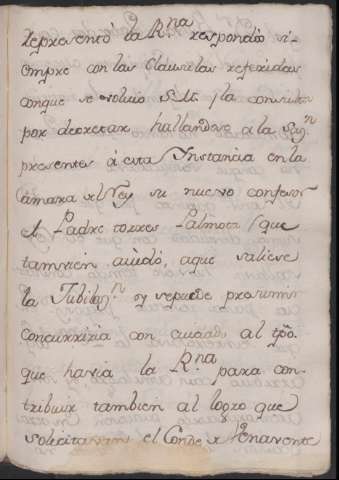 Representó la R.na respondio si-
empre con las Clausulas referidas
conque se volvio S.M. la consulta
por decretar, hallandose a la Sup.n
presentes á esta Instancia en la
Camara el Rey su nuevo confesor
el Padre torres Palmota (que
tambien aiudó, aque saliese
la Jubilaz.n) y se puede presumir
concurriria con cuidado al tpõ.
que havia la R.na para con-
tribuir tambien al logro que
solicitavan el Conde x Venavente